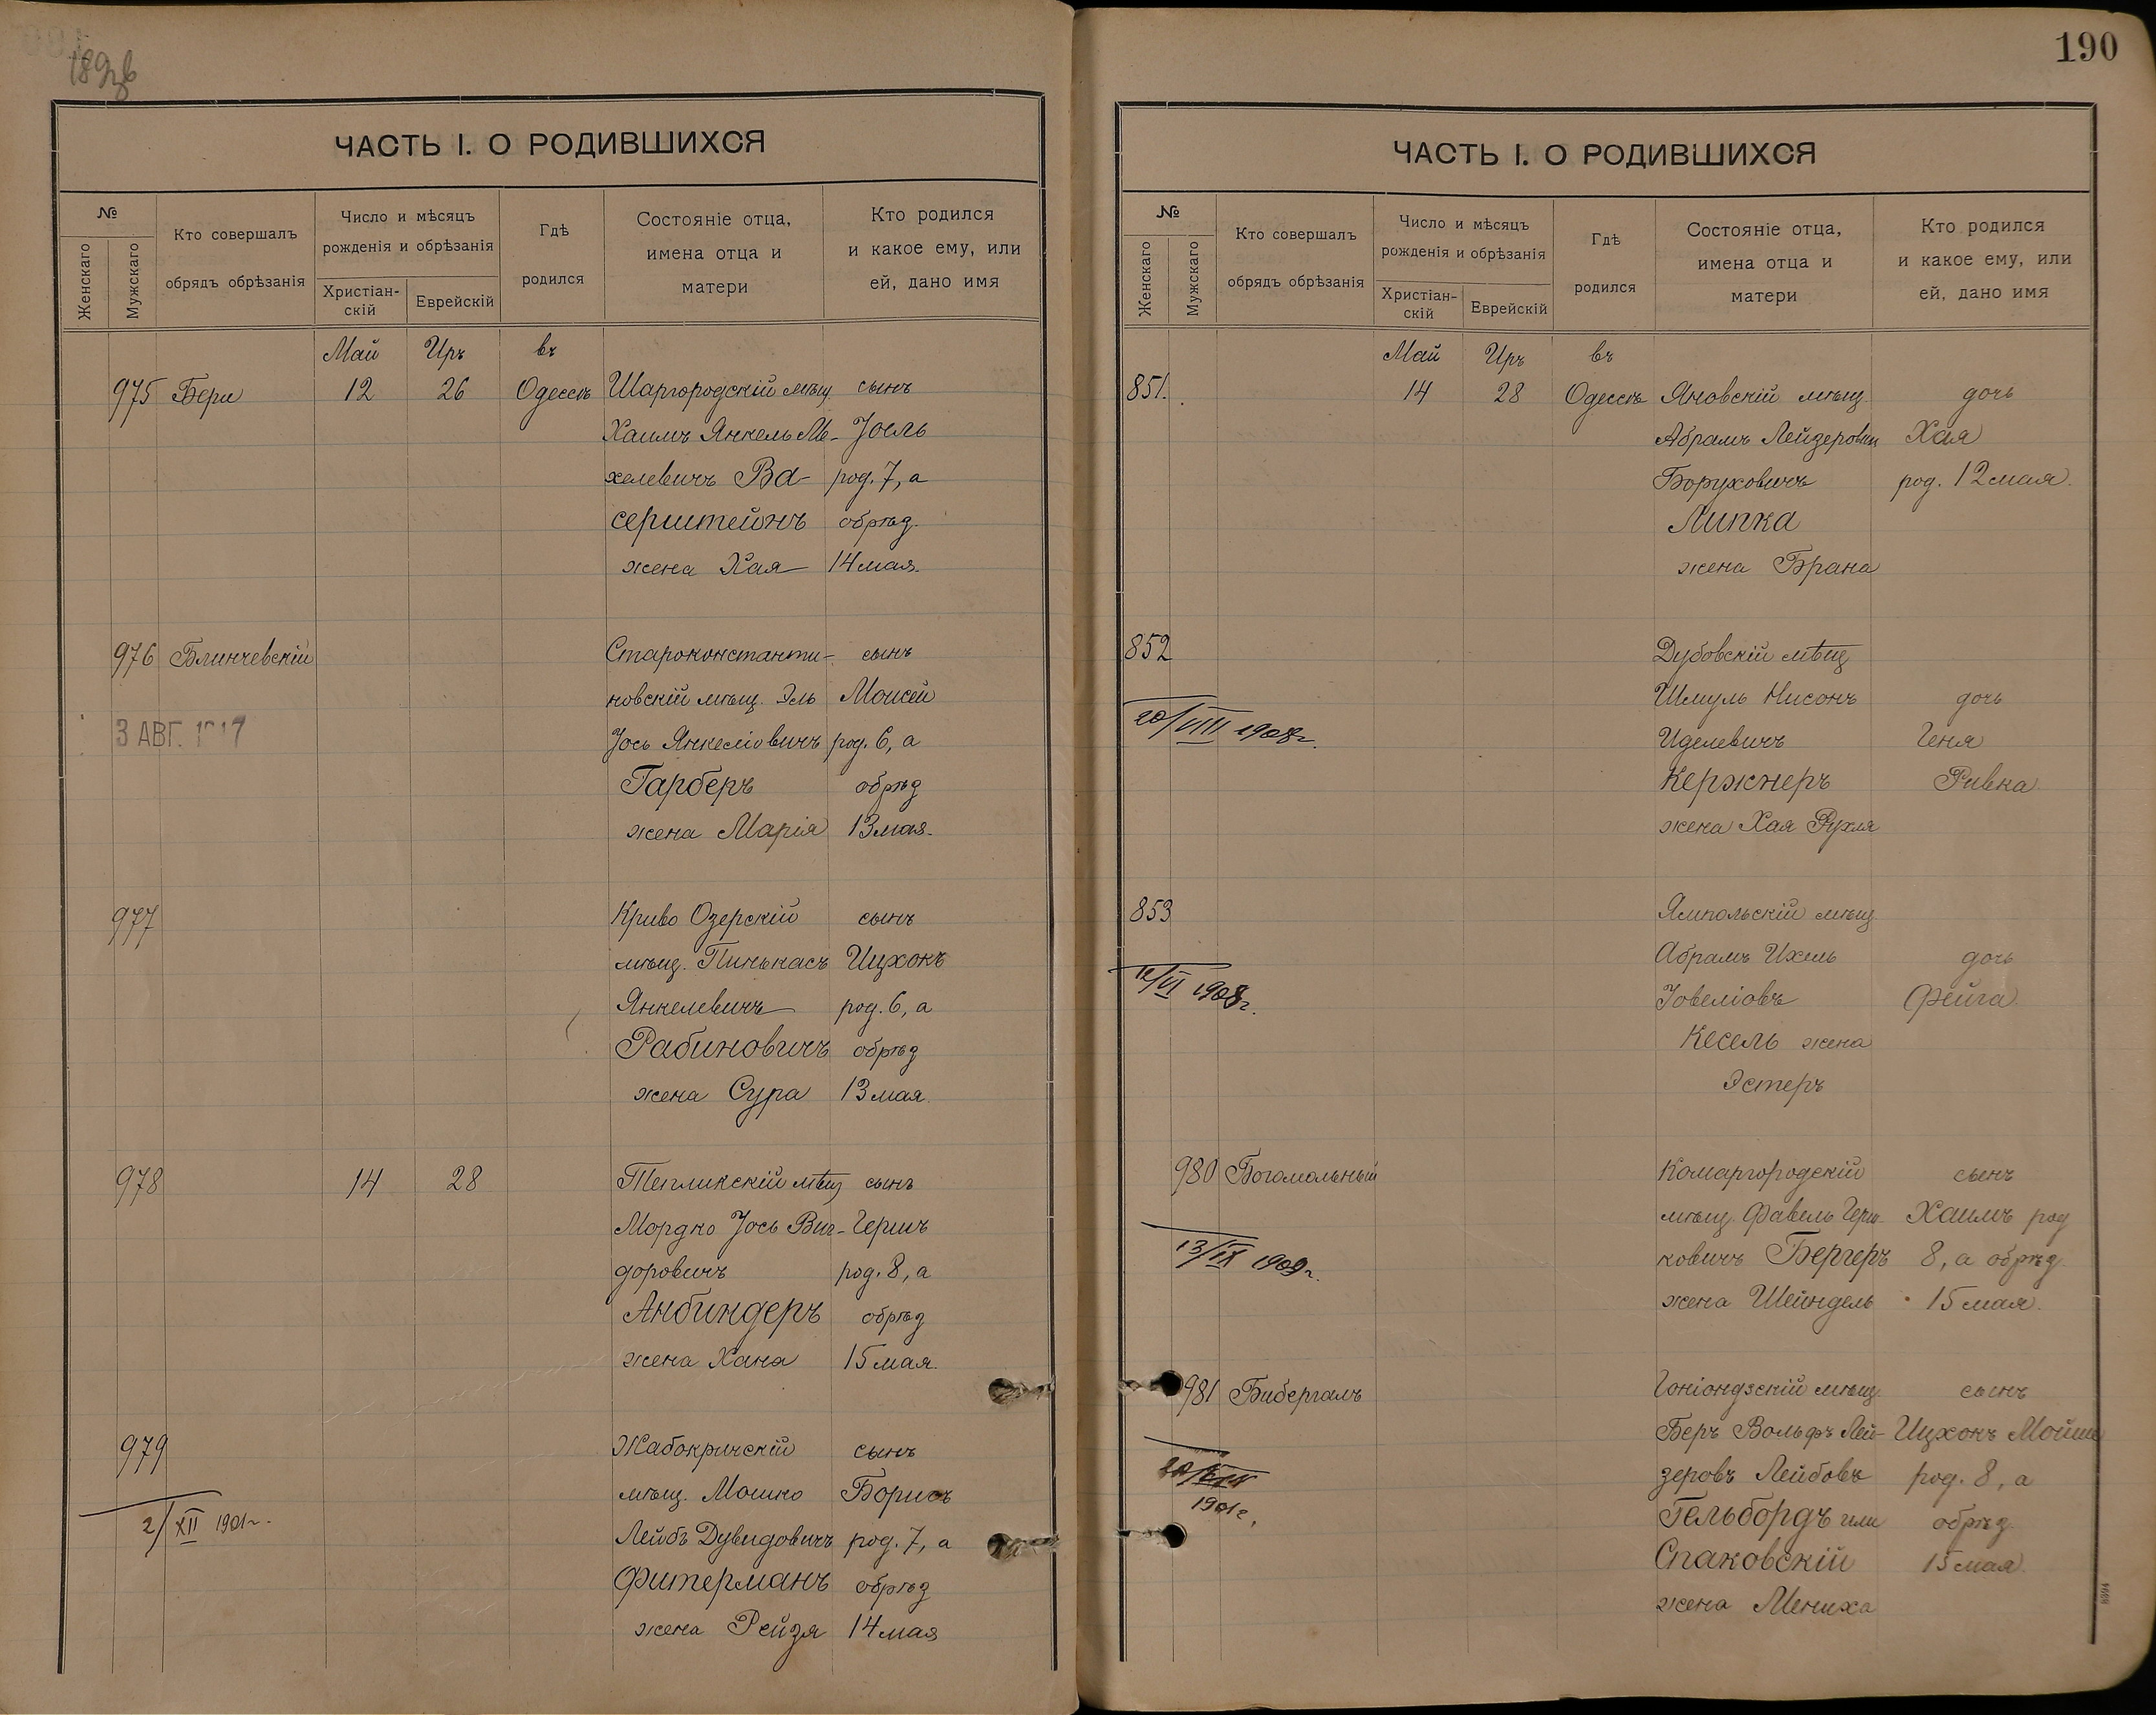 190
ЧАСТЬ I. О РОДИВШИХСЯ
№
Женскаго
Мужскаго
Кто совершалъ
обрядъ обрѣзанія
Число и мѣсяцъ
рожденія и обрѣзанія
Христіан-
скій
Еврейскій
Гдѣ
родился
Состояніе отца,
имена отца и
матери
Кто родился
и какое ему, или
ей, дано имя
Май Иръ въ
975 Бери 12 26 Одессѣ Шаргородскій мѣщ. сынъ
Хаимъ Янкель Ме- Іоель
хелевичъ Ва- род. 7, а
серштейнъ обрѣз.
жена Хая 14 мая.
976 Блинчевскій Староконстанти- сынъ
новскій мѣщ. Эль Моисей
3 АВГ. Іось Янкеліовичъ род. 6, а
Гарберъ обрѣз
жена Марія 13 мая.
977 Криво Озерскій сынъ
мѣщ. Пинькасъ Ицхокъ
Янкелевичъ род. 6, а
Рабиновичъ обрѣз
жена Сура 13 мая.
978 14 28 Тепликскій мѣщ сынъ
Мордко Іось Виг- Гершъ
доровичъ род. 8, а
Анбиндеръ обрѣз
жена Хана 15 мая.
979 Жабокричскій сынъ
мѣщ. Мошко Борисъ
2/XII 1901 г. Лейбъ Дувидовичъ род. 7, а
Фитерманъ обрѣз
жена Рейзя 14 мая
ЧАСТЬ I. О РОДИВШИХСЯ
№
Женскаго
Мужскаго
Кто совершалъ
обрядъ обрѣзанія
Число и мѣсяцъ
рожденія и обрѣзанія
Христіан-
скій
Еврейскій
Гдѣ
родился
Состояніе отца,
имена отца и
матери
Кто родился
и какое ему, или
ей, дано имя
Май Иръ въ
851. 14 28 Одессѣ Яновскій мѣщ. дочь
Абрамъ Лейзеровъ Хая
Боруховичъ род. 12 мая.
Липка
жена Брана
852 Дубовскій мѣщ
Шмуль Нисонъ дочь
20/VIII 1908 г. Иделевичъ Геня
Кержнеръ Ривка
жена Хая Рухля
853 Ямпольскій мѣщ
Абрамъ Ихель дочь
12/VI 1908 г. Іовеліовъ Фейга
Кесель жена
Эстеръ
980 Богомольный Комаргородскій сынъ
мѣщ. Фавель Герш- Хаимъ род
13/IX 1909 г. ковичъ Бергеръ 8, а обрѣз
жена Шейндель 15 мая.
981 Бибергаль Гоніондзскій мѣщ. сынъ
Беръ Вольфъ Лей- Ицхокъ Мойше
зеровъ Лейбовъ род. 8, а
1901 г. Гельбордъ или обрѣз.
Спаковскій 15 мая.
жена Мениха